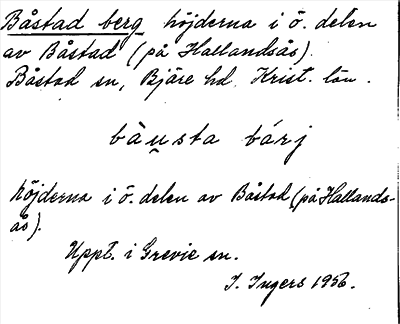 Båstad berg höjderna i ö. delen
av Båstad (på Hallandsås).
Båstad sn, Bjäre hd. Krist. län.
bàu̯sta bárj
höjderna i ö. delen av Båstad (på Hallands-
ås).
Uppt. i Grevie sn.
I. Ingers 1956.